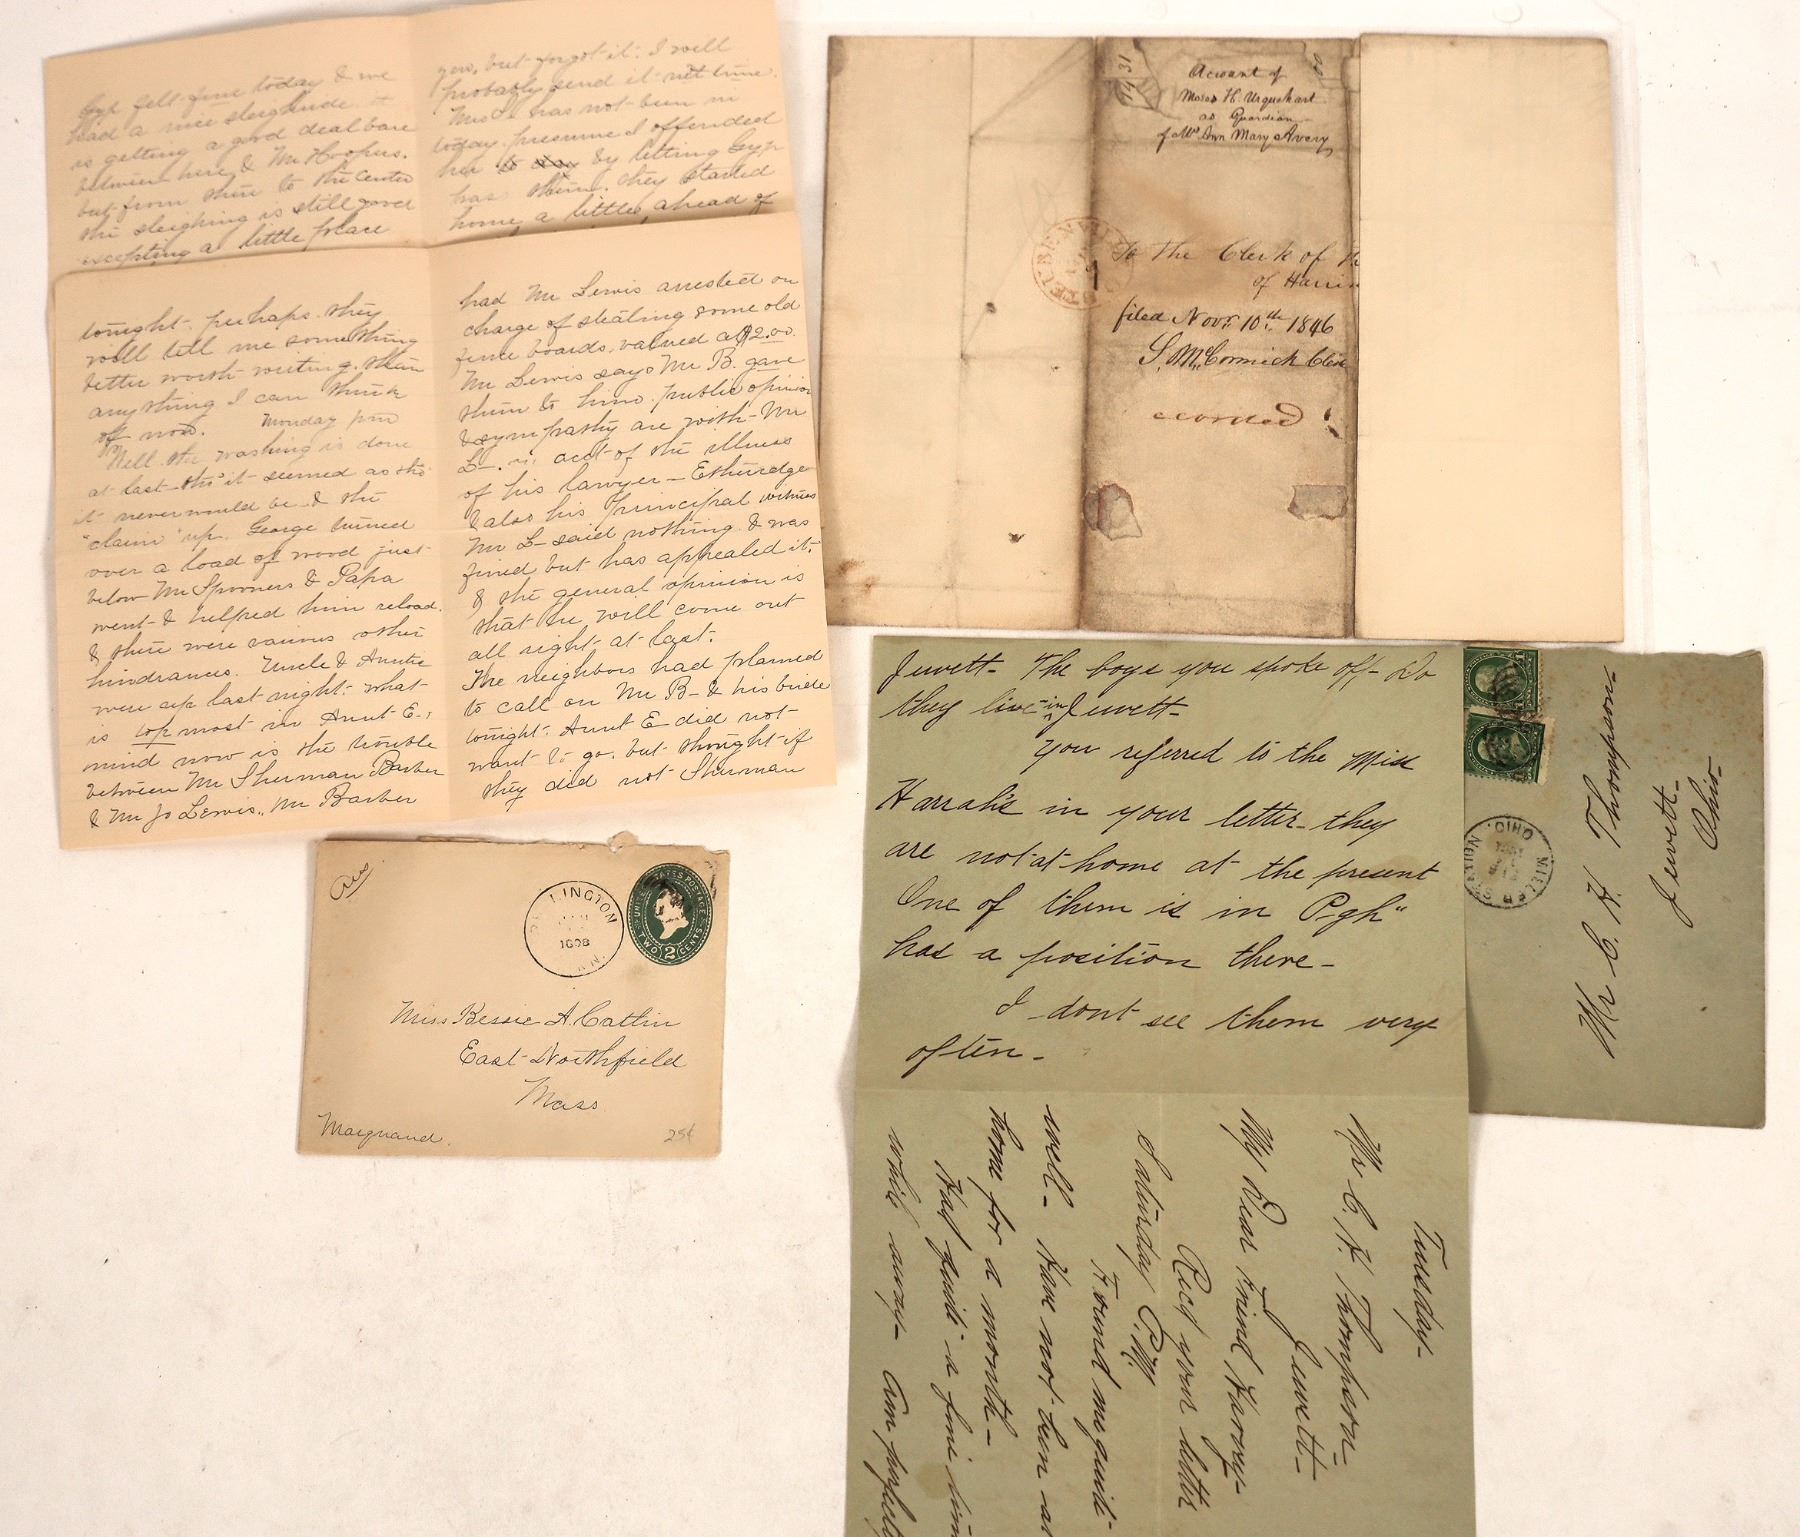 felt fine today & we
had a nice sleighride. it
is getting a good deal bare
between here & Mr Hoopers.
but from there to the Center
the sleighing is still good
excepting a little place
you, but forgot it. I will
probably send it next time.
Mrs L has not been in
today. presume I offended
her by letting Gyp
has them. they started
home a little ahead of
tonight. perhaps they
will tell me something
better worth writing. than
anything I can think
of now. Monday pm
Well the washing is done
at last tho' it seemed as tho'
it never would be & the
"claim" up. George turned
over a load of wood just
below Mr Spooners & Papa
went & helped him reload.
& there were various other
hindrances. Uncle & Auntie
were up last night. what
is top most in Aunt E.,
mind now is the trouble
between Mr Sherman Barber
& Mr Jo Lewis., Mr Barber
had Mr Lewis arrested on
charge of stealing some old
fence boards. valued at $2.00.
Mr Lewis says Mr B. gave
them to him. public opinion
& sympathy are with Mr
L-. acct of the illness
of his lawyer - Etheredge
& also his Principal witness
Mr L- said nothing & was
fined but has appealed it.
& the general opinion is
that he will come out
all right at last.
The neighbors had planned
to call on Mr B- & his bride
tonight. Aunt E did not
want to go. but thought if
they did not Sherman
Ans
LINGTON
1898
UNITED STATES POSTAGE
TWO 2 CENTS
Miss Bessie A Catlin
East Northfield
Mass
Marquand.
25¢
Account of
Moses H. Urquehart
as Guardian
of Mrs Ann Mary Avery
STEUBENVILLE
To The Clerk of
of Harris
filed Novr. 10th 1846
S. McCormick Clerk
ecorded
Jewett- The boys you spoke off- Do
they live in Jewett-
You referred to the Miss
Harrah's in your letter- they
are not at home at the present
One of them is in P-gh"
has a position there-
I dont see them very
often-
Tuesday-
Mr C. H. Thompson-
Jewett-
My Dear Friend Harvey-
Recd your letter
Saturday P.M.
Found me quite
well- Have not been at
home for a month-
Had quite a fine time
while away- Am perfectly
MILLER STATION,
OHIO
Mr C H Thompson-
Jewett-
Ohio-